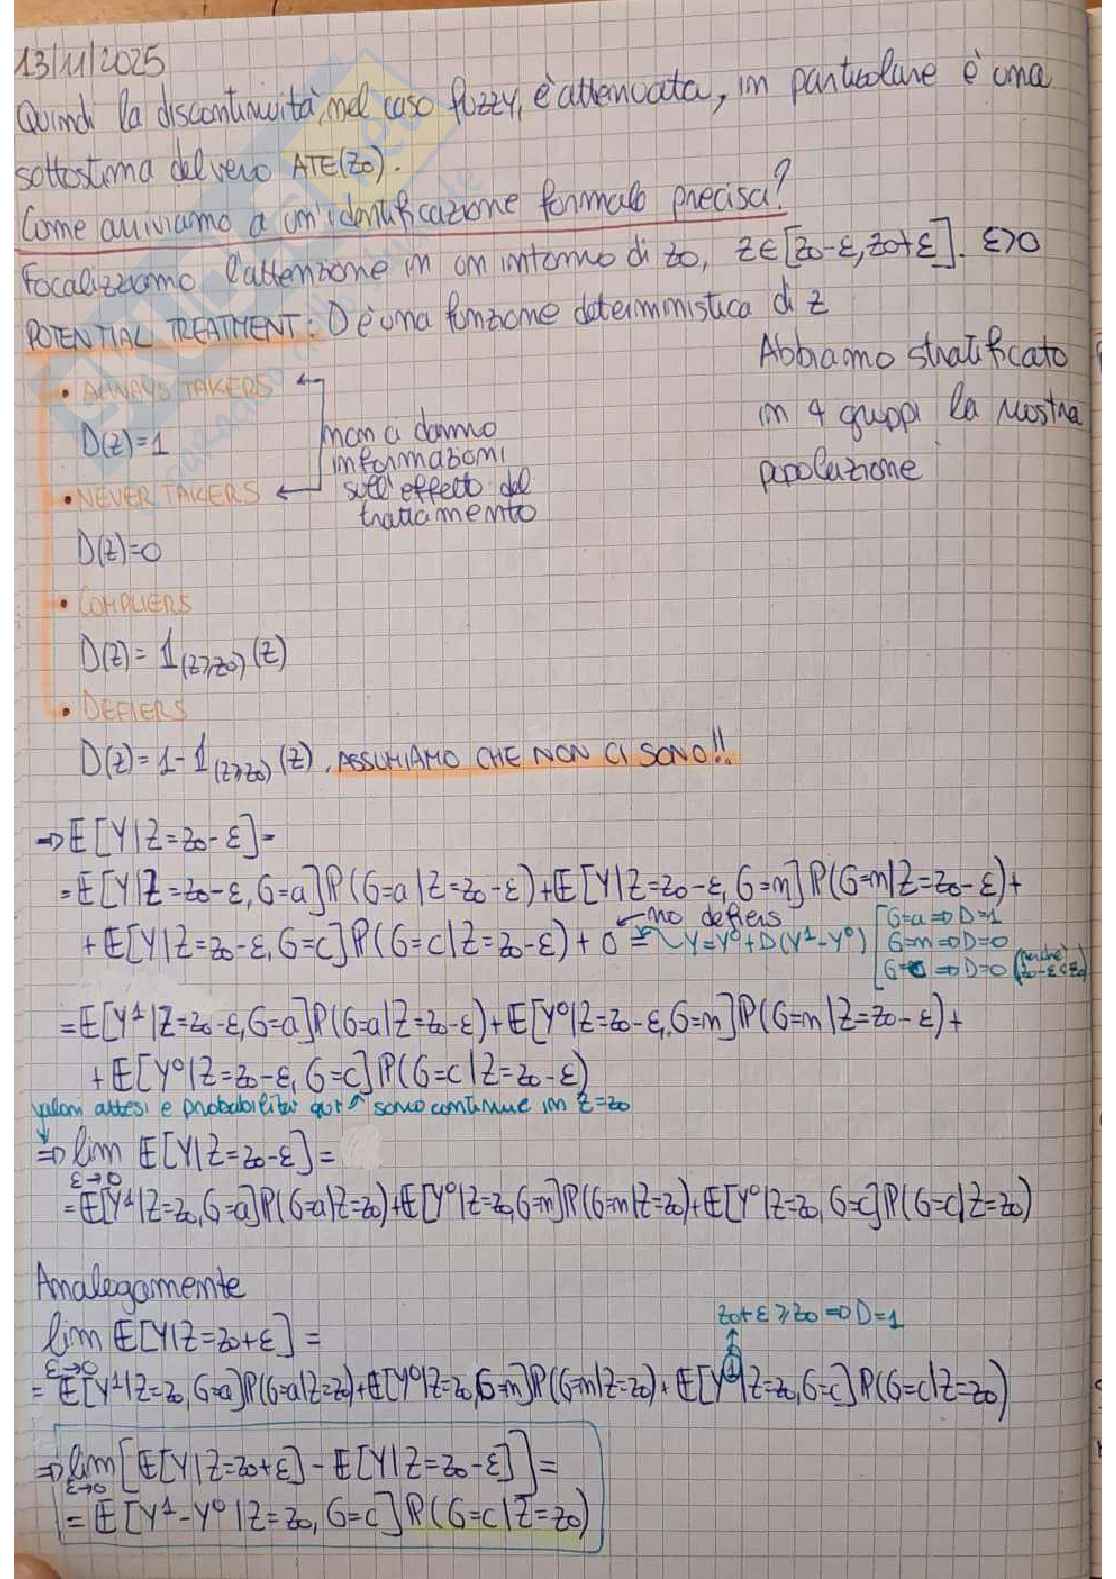 13/11/2025
Quindi la discontinuità, nel caso fuzzy, è attenuata, in particolare è una
sottostima del vero ATE(z₀).
Come arriviamo a un'identificazione formale precisa?
Focalizziamo l'attenzione in un intorno di z₀, z∈[z₀-ε, z₀+ε]. ε>0
POTENTIAL TREATMENT: D è una funzione deterministica di z
Abbiamo stratificato
in 4 gruppi la nostra
popolazione
• ALWAYS TAKERS
D(z)=1
non ci danno
informazioni
sull'effetto del
trattamento
• NEVER TAKERS
D(z)=0
• COMPLIERS
D(z)= 𝟙(z≥z₀) (z)
• DEFIERS
D(z)= 1-𝟙(z≥z₀) (z). ASSUMIAMO CHE NON CI SONO!!
⇒ E[Y|Z=z₀-ε]=
= E[Y|Z=z₀-ε, G=a]P(G=a|Z=z₀-ε)+E[Y|Z=z₀-ε, G=n]P(G=n|Z=z₀-ε)+
+ E[Y|Z=z₀-ε, G=c]P(G=c|Z=z₀-ε) + 0 =
← no defiers
Y=Y⁰+D(Y¹-Y⁰)
G=a ⇒ D=1
G=n ⇒ D=0
G=c ⇒ D=0 (perché z₀-ε<z₀)
= E[Y¹|Z=z₀-ε, G=a]P(G=a|Z=z₀-ε)+E[Y⁰|Z=z₀-ε, G=n]P(G=n|Z=z₀-ε)+
+ E[Y⁰|Z=z₀-ε, G=c]P(G=c|Z=z₀-ε)
valori attesi e probabilità qui ↑ sono continue in z=z₀
⇒ lim ε→0 E[Y|Z=z₀-ε]=
= E[Y¹|Z=z₀, G=a]P(G=a|Z=z₀)+E[Y⁰|Z=z₀, G=n]P(G=n|Z=z₀)+E[Y⁰|Z=z₀, G=c]P(G=c|Z=z₀)
Analogamente
z₀+ε ≥ z₀ ⇒ D=1
lim ε→0 E[Y|Z=z₀+ε] =
= E[Y¹|Z=z₀, G=a]P(G=a|Z=z₀)+E[Y⁰|Z=z₀, G=n]P(G=n|Z=z₀)+E[Y¹|Z=z₀, G=c]P(G=c|Z=z₀)
⇒ lim ε→0 [E[Y|Z=z₀+ε] - E[Y|Z=z₀-ε]] =
= E[Y¹-Y⁰|Z=z₀, G=c]P(G=c|Z=z₀)